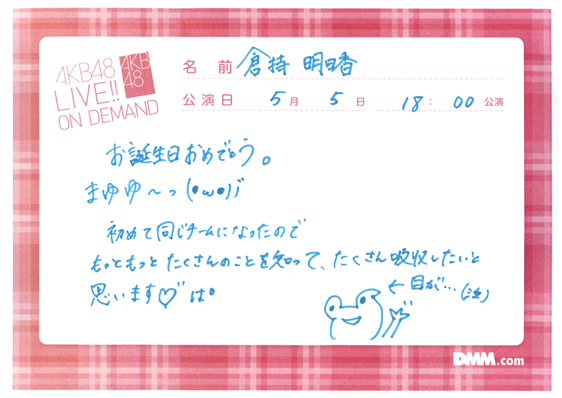 AKB48
LIVE!!
ON DEMAND
AKB
48
名 前 倉持 明日香
公演日 5月 5日 18:00 公演
お誕生日おめでとう。
まゆゆ〜っ (•ω•)ノ
初めて同じチームになったので
もっともっと たくさんのことを知って、たくさん吸収したいと
思います♡は。
← 目が…(泣)
DMM.com